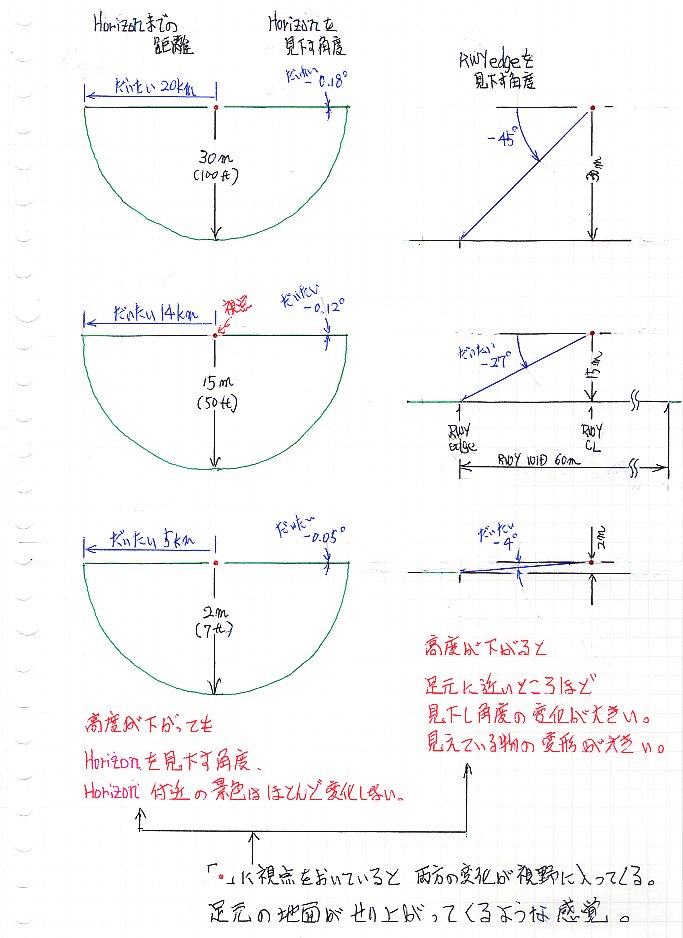 Horizonまでの
距離
Horizonを
見下す角度
RWY edgeを
見下す角度
だいたい 20km
だいたい
-0.18°
30m
(100ft)
-45°
30m
だいたい 14km
視点
だいたい
-0.12°
15m
(50ft)
だいたい
-27°
15m
RWY
edge
RWY
CL
RWY WID 60m
だいたい 5km
だいたい
-0.05°
2m
(7ft)
だいたい
-4°
2m
高度が下がると
足元に近いところほど
見下し角度の変化が大きい。
見えている物の変形が大きい。
高度が下がっても
Horizonを見下す角度、
Horizon 付近の景色はほとんど変化しない。
「・」に視点をおいていると 両方の変化が視野に入ってくる。
足元の地面がせり上がってくるような感覚。